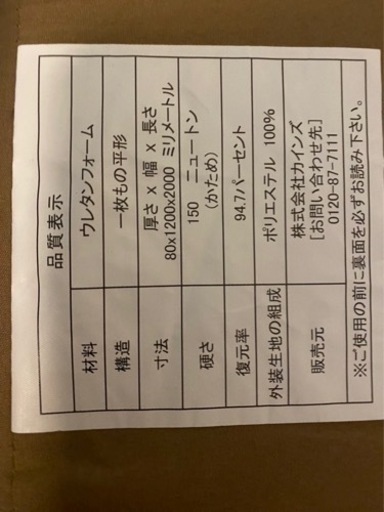 品質表示
材料 ウレタンフォーム
構造 一枚もの平形
寸法 厚さ x 幅 x 長さ
80x1200x2000 ミリメートル
硬さ 150 ニュートン
(かため)
復元率 94.7パーセント
外装生地の組成 ポリエステル 100%
販売元 株式会社カインズ
[お問い合わせ先]
0120-87-7111
※ご使用の前に裏面を必ずお読み下さい。